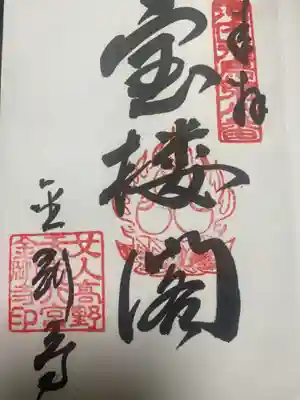 奉拝
宝楼閣
金剛寺
女人高野
天野山
金剛寺印